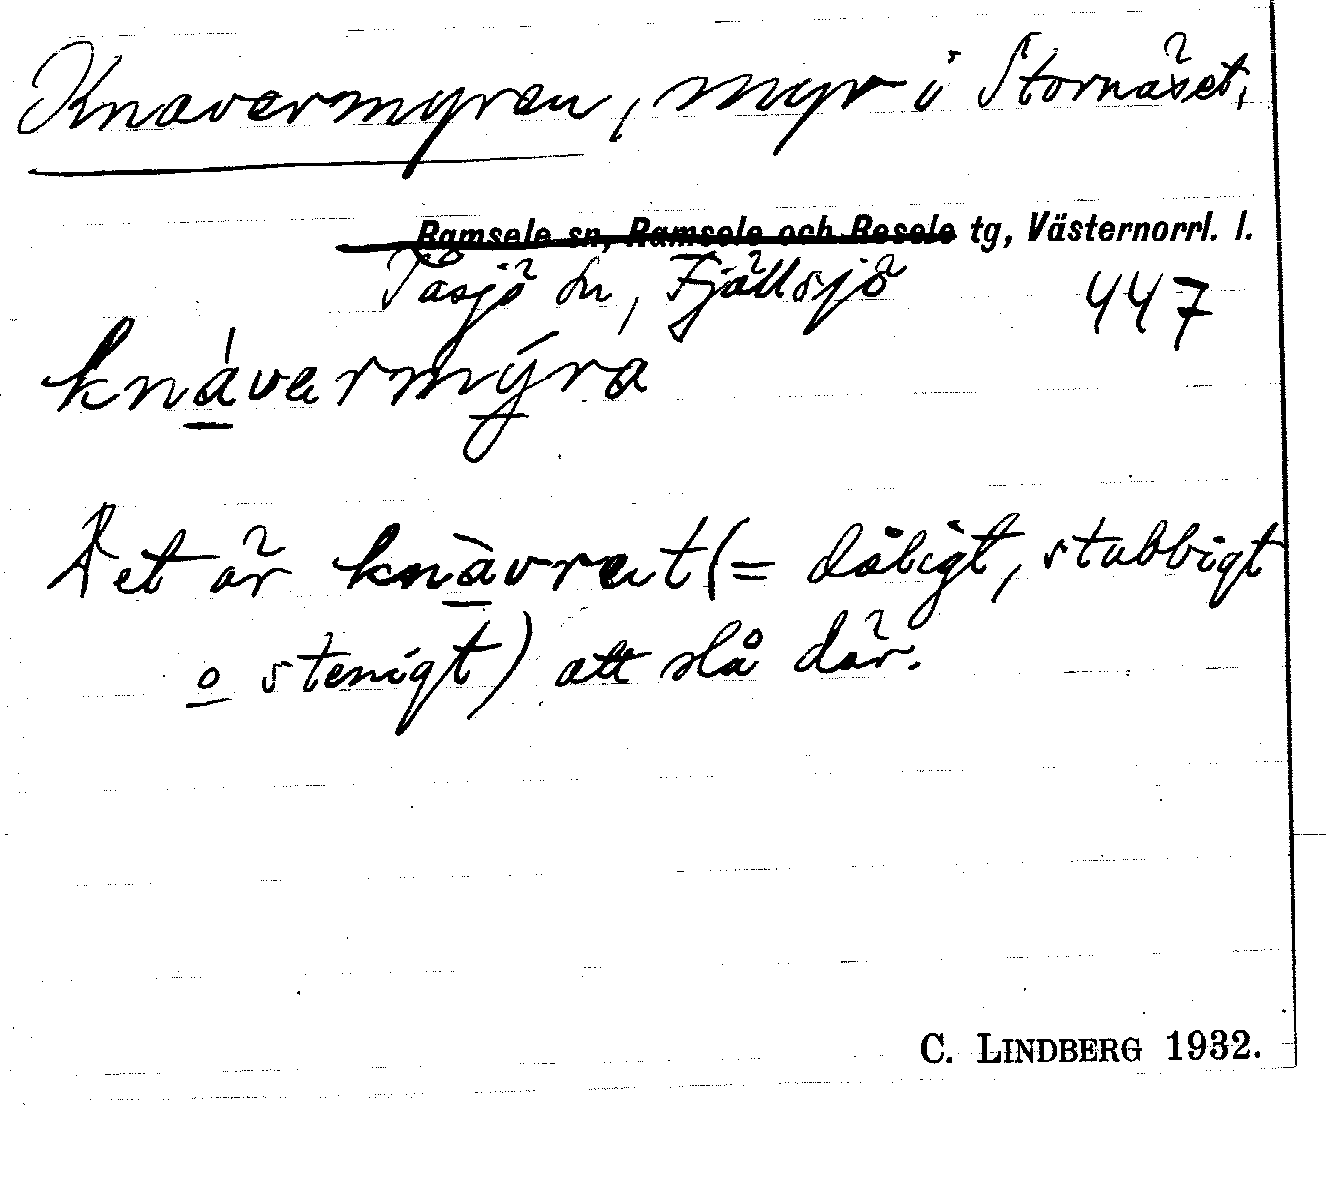 Knavermyren, myr i Stornäset,
Ramsele sn, Ramsele och Resele tg, Västernorrl. l.
Tåsjö sn, Fjällsjö 447
kna̱̍vermýra
Det är knà̱vret (= dåligt, stubbigt
o stenigt) att slå där.
C. LINDBERG 1932.